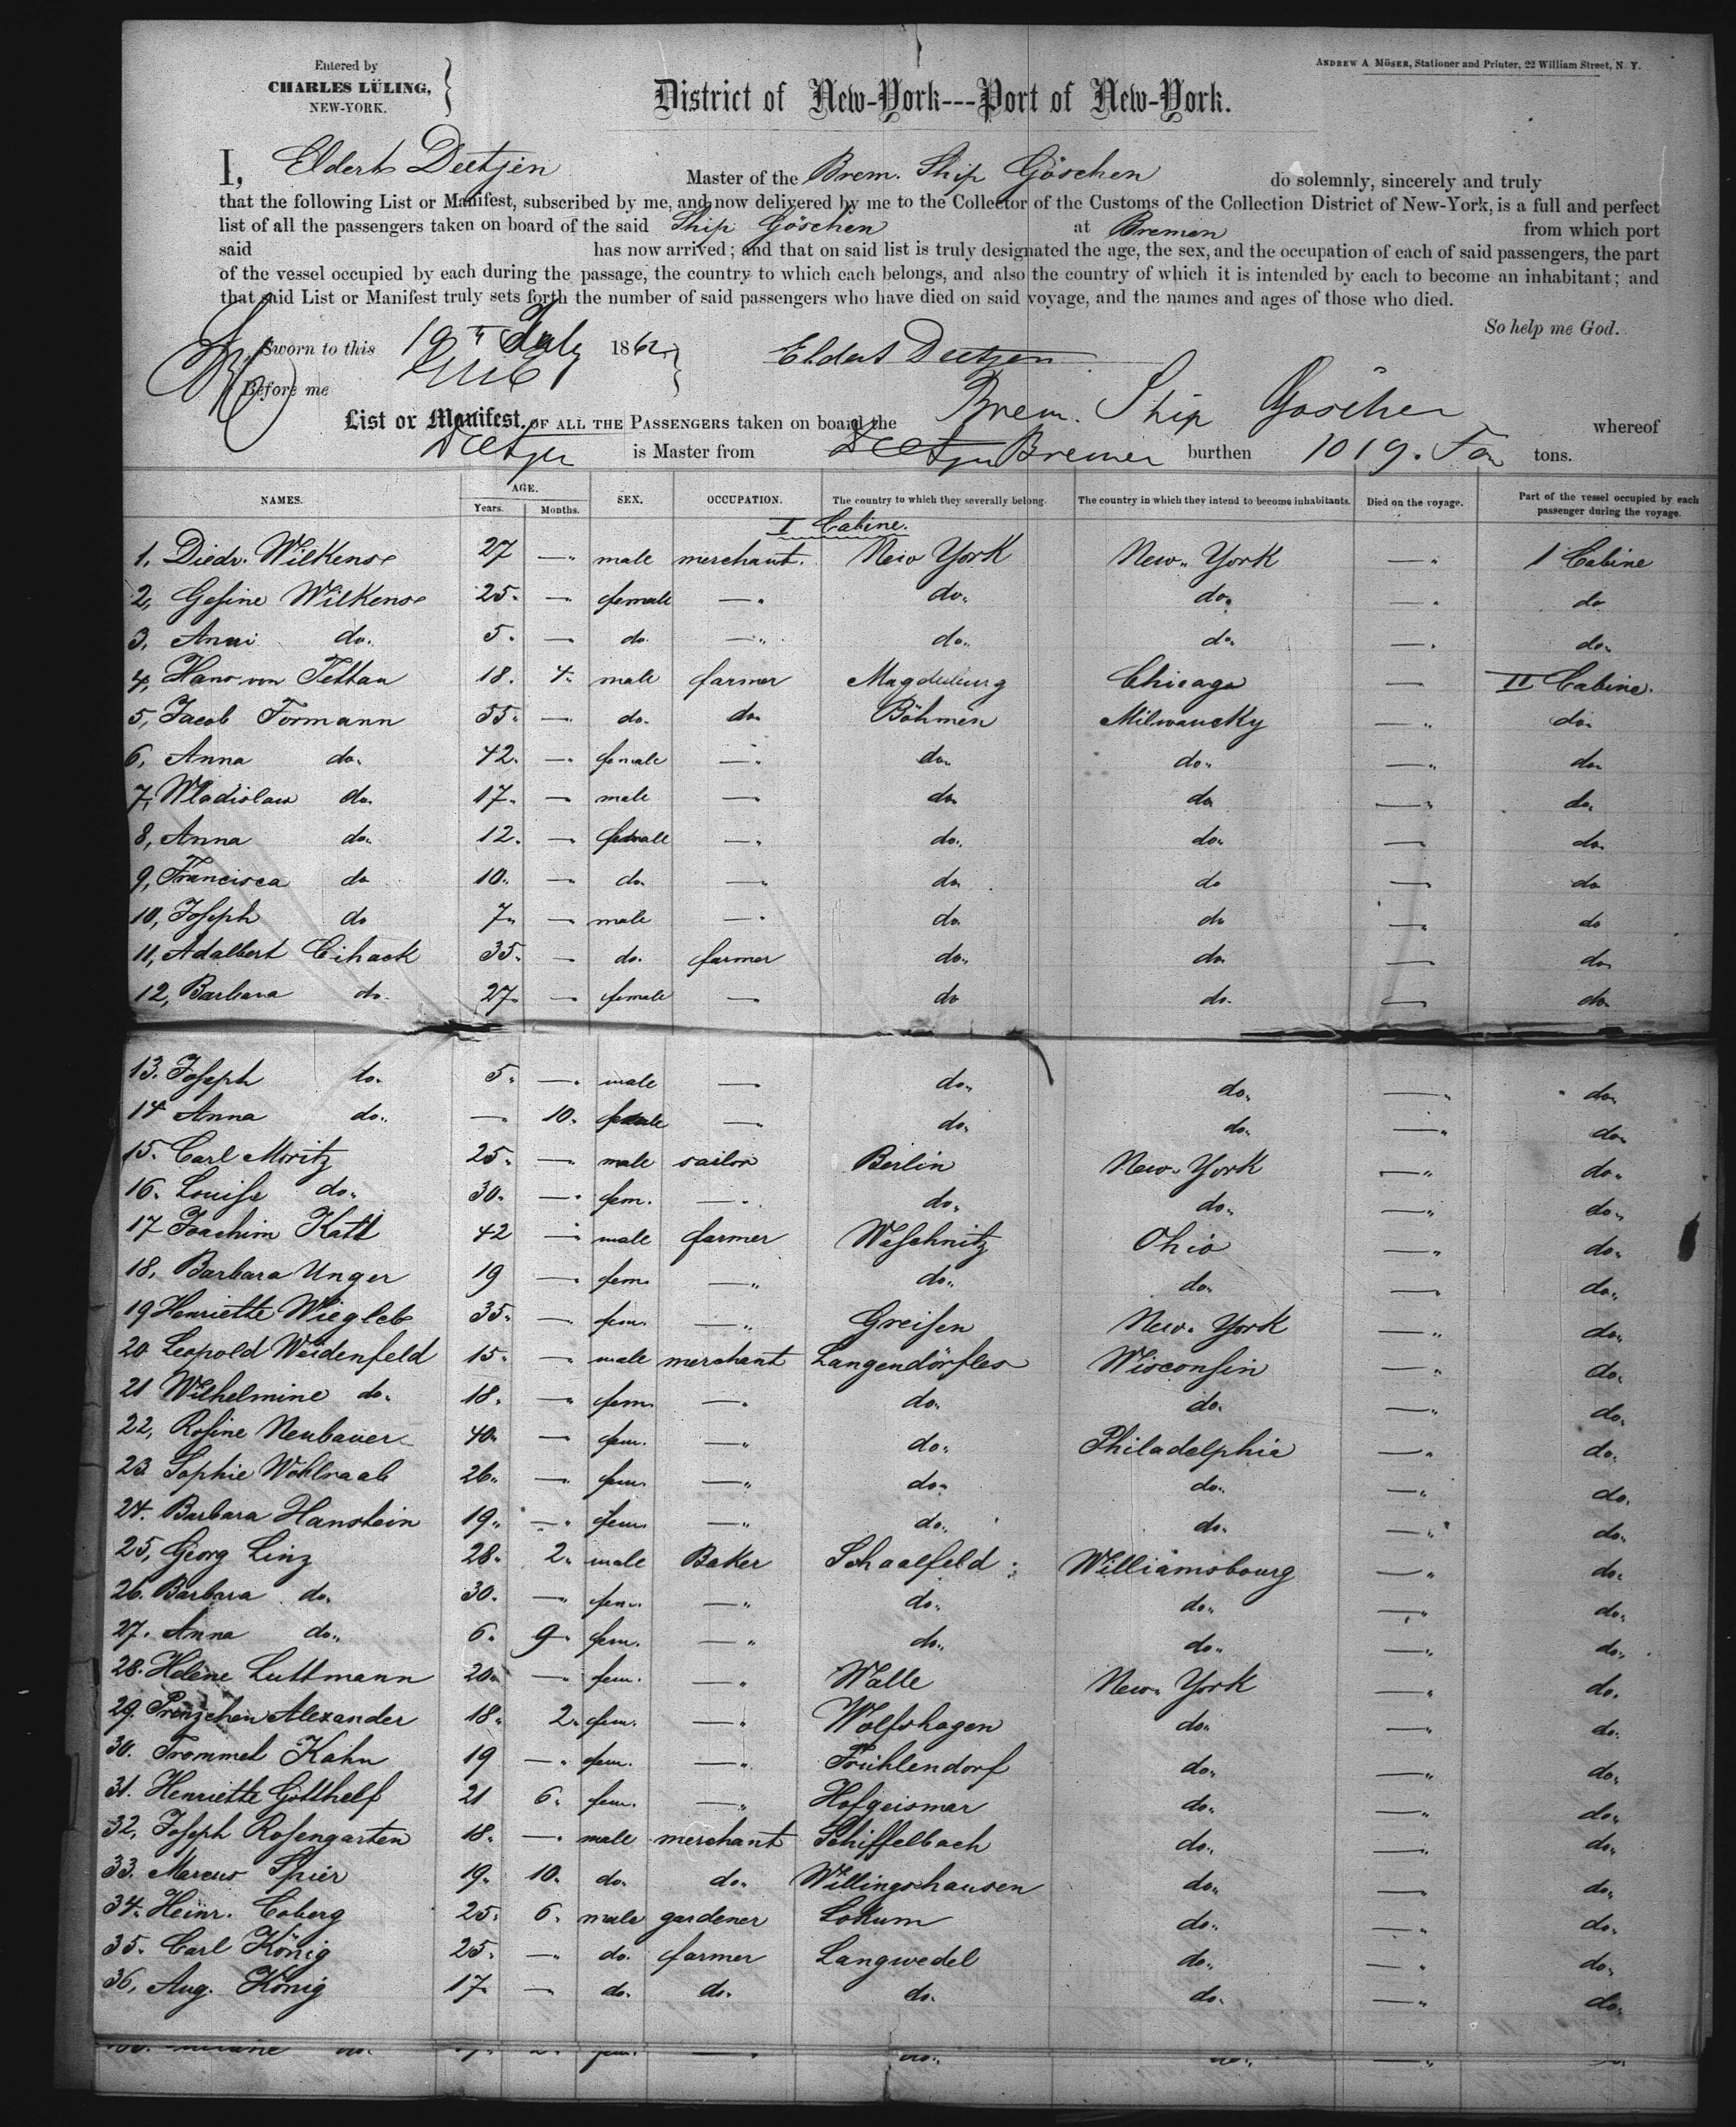 Entered by
CHARLES LÜLING,
NEW-YORK.
ANDREW A MÖSER, Stationer and Printer, 22 William Street, N. Y.
District of New-York---Port of New-York.
I, Eldert Deetjen Master of the Brem. Ship Göschen do solemnly, sincerely and truly
that the following List or Manifest, subscribed by me, and now delivered by me to the Collector of the Customs of the Collection District of New-York, is a full and perfect
list of all the passengers taken on board of the said Ship Göschen at Bremen from which port
said has now arrived; and that on said list is truly designated the age, the sex, and the occupation of each of said passengers, the part
of the vessel occupied by each during the passage, the country to which each belongs, and also the country of which it is intended by each to become an inhabitant; and
that said List or Manifest truly sets forth the number of said passengers who have died on said voyage, and the names and ages of those who died.
So help me God.
Sworn to this 19th July 1862 Eldert Deetjen
Before me
List or Manifest, OF ALL THE PASSENGERS taken on board the Brem. Ship Goschen whereof
Deetjen is Master from Deetjen Bremen burthen 1019. Ton tons.
NAMES. AGE. Years. Months. SEX. OCCUPATION. The country to which they severally belong. The country in which they intend to become inhabitants. Died on the voyage. Part of the vessel occupied by each passenger during the voyage.
I Cabine.
1, Diedr. Wilkens 27 — male merchant. New York New-York — I Cabine
2, Gesine Wilkens 25. — female — do. do. — do
3, Anni do. 5. — do. — do. do. — do.
4, Hans von Tettau 18. 4. male farmer Magdeburg Chicago — II Cabine.
5, Jacob Formann 55. — do. do. Böhmen Milwaucky — do.
6, Anna do. 42. — female — do. do. — do.
7, Wladislaw do. 17. — male — do. do. — do.
8, Anna do. 12. — female — do. do. — do.
9, Francisca do 10. — do. — do. do — do
10, Joseph do 7. — male — do. do — do
11, Adalbert Cihack 35. — do. farmer do. do. — do.
12, Barbara do. 27. — female — do do. — do.
13. Joseph do. 5. — male — do. do. — do.
14 Anna do. — 10. female — do. do. — do.
15. Carl Moritz 25. — male sailor Berlin New-York — do.
16. Louise do. 30. — fem. — do. do. — do.
17 Joachim Katt 42 — male farmer Weschnitz Ohio — do.
18, Barbara Unger 19 — fem. — do. do. — do.
19 Henriette Wiegleb 35. — fem. — Greisen New-York — do.
20 Leopold Weidenfeld 15. — male merchant Langendörfles Wisconsin — do.
21 Wilhelmine do. 18. — fem. — do. do. — do.
22, Rosine Neubauer 40. — fem. — do. Philadelphia — do.
23. Sophie Wohlraab 26. — fem. — do. do. — do.
24. Barbara Hanstein 19. — fem. — do. do. — do.
25, Georg Linz 28. 2. male Baker Schaalfeld Williamsbourg — do.
26. Barbara do. 30. — fem. — do. do. — do.
27. Anna do. 6. 9. fem. — do. do. — do.
28. Helene Luttmann 20. — fem. — Walle New-York — do.
29. Prinzchen Alexander 18. 2. fem. — Wolfshagen do. — do.
30. Trommel Kahn 19 — fem. — Frühlendorf do. — do.
31. Henriette Gotthelf 21 6. fem. — Hofgeismar do. — do.
32, Joseph Rosengarten 18. — male merchant Schiffelbach do. — do.
33. Marcus Spier 19. 10. do. do. Willingshausen do. — do.
34. Heinr. Coberg 25. 6. male gardener Lokum do. — do.
35. Carl König 25. — do. farmer Langwedel do. — do.
36, Aug. König 17. — do. do. do. do. — do.